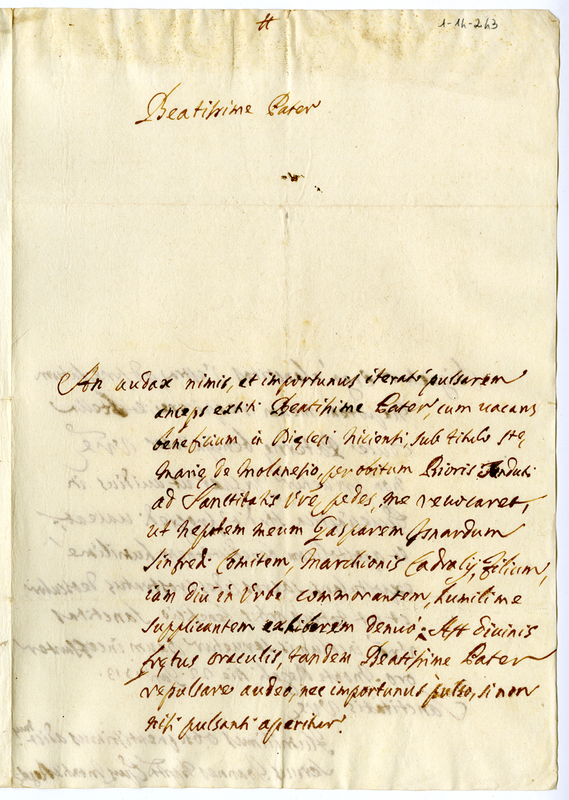 #
1-14-243
Beatissime Pater
An audax nimis, et importunus iterato pulsarem
anceps extiti Beatissime Pater, cum vacans
beneficium in Diǫlesi Nicienti, sub titulo Stę
Marię de Molanesio, per obitum Prioris
ad Sanctitatis Vrę pedes, me revocaret,
ut Nepotem meum Gasparem Isnardum
Sinfredi Comitem, Marchionis Cadralij, filium,
iam diu in Urbe commorantem, humilime
supplicantem exhiberem denuo. Ast divinis
fretus oraculis, tandem Beatissime Pater
repulsare audeo, nec importunus pulso, si non
nisi pulsanti aperitur.